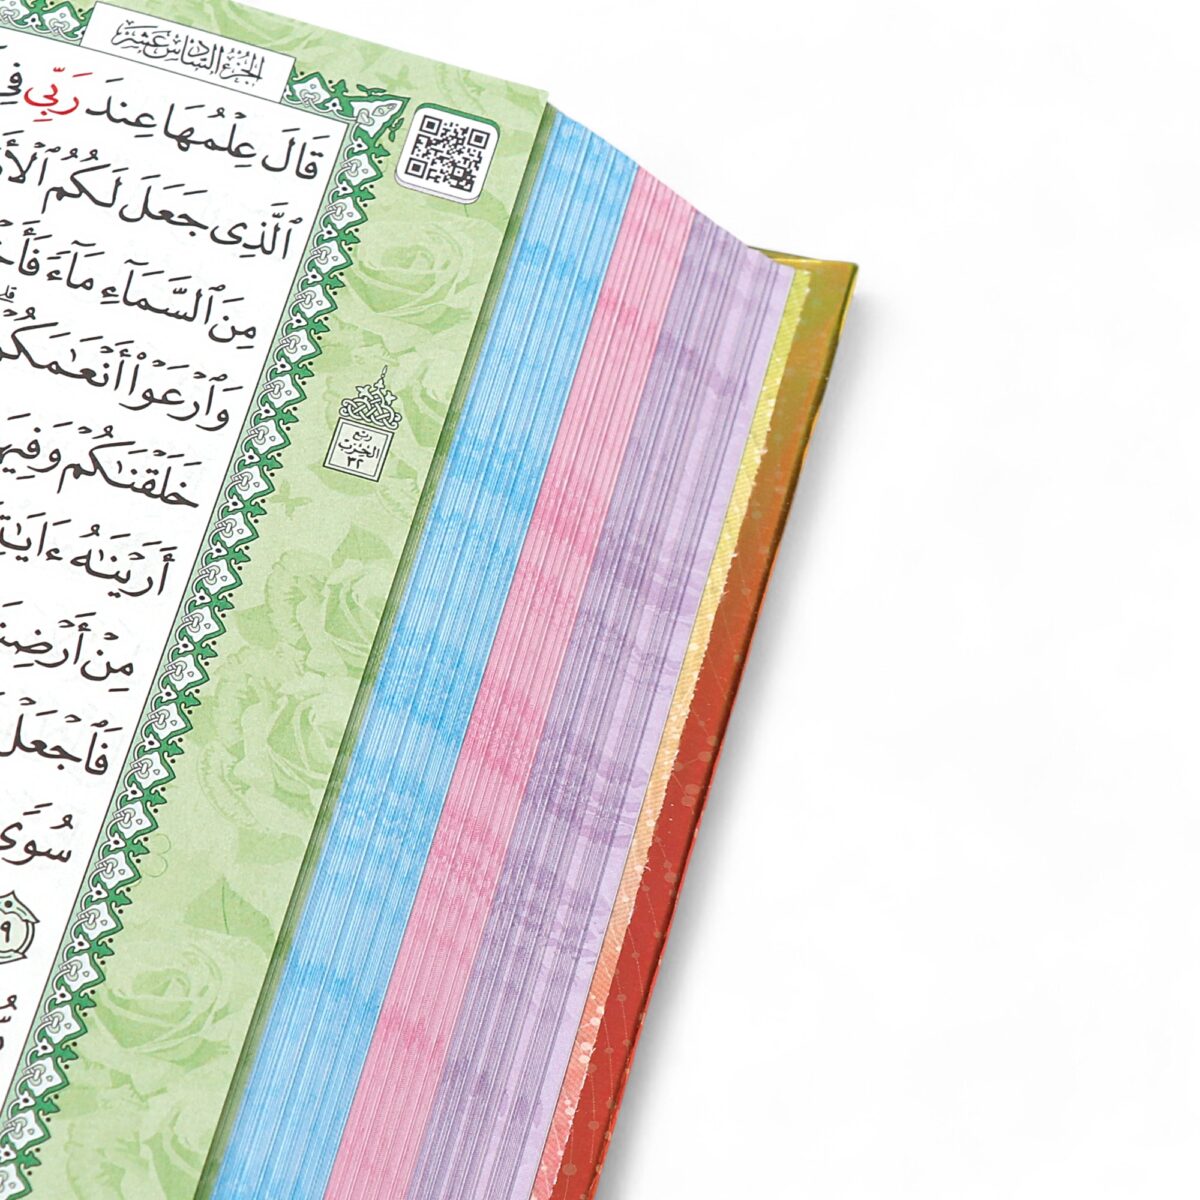 الجزء السادس عشر
قَالَ عِلْمُهَا عِندَ رَبِّى فِى
ٱلَّذِى جَعَلَ لَكُمُ
مِنَ ٱلسَّمَآءِ مَآءً
وَٱرْعَوْا۟ أَنْعَٰمَكُمْ
خَلَقْنَٰكُمْ وَفِيهَا
أَرَيْنَٰهُ ءَايَٰتِنَا
مِنْ أَرْضِنَا
فَٱجْعَلْ
سُوًى
ربع
الحزب
٣٢